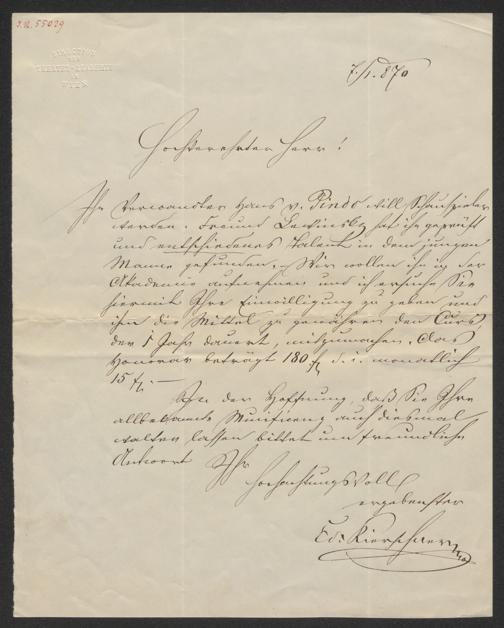 I.N. 55039
DIRECTION
DER
THEATER-AKADEMIE
IN
WIEN
7./1. 870
Hochverehrter Herr!
Ihr Verwandter Hans v. Pindo will Schauspieler
werden. Freund Lewinsky hat ihn geprüft
und entschiedenes Talent in dem jungen
Manne gefunden. Wir wollen ihn in der
Akademie aufnehmen und ich ersuche Sie
hiermit Ihre Einwilligung zu geben und
ihm die Mittel zu gewähren den Curs,
der 1 Jahr dauert, mitzumachen. Das
Honorar beträgt 180 fl. d. i. monatlich
15 fl. —
In der Hoffnung, daß Sie Ihre
allbekannte Munificenz auch diesmal
walten lassen bittet um freundliche
Antwort Ihr
hochachtungsvoll
ergebenster
Ed: Kierschner